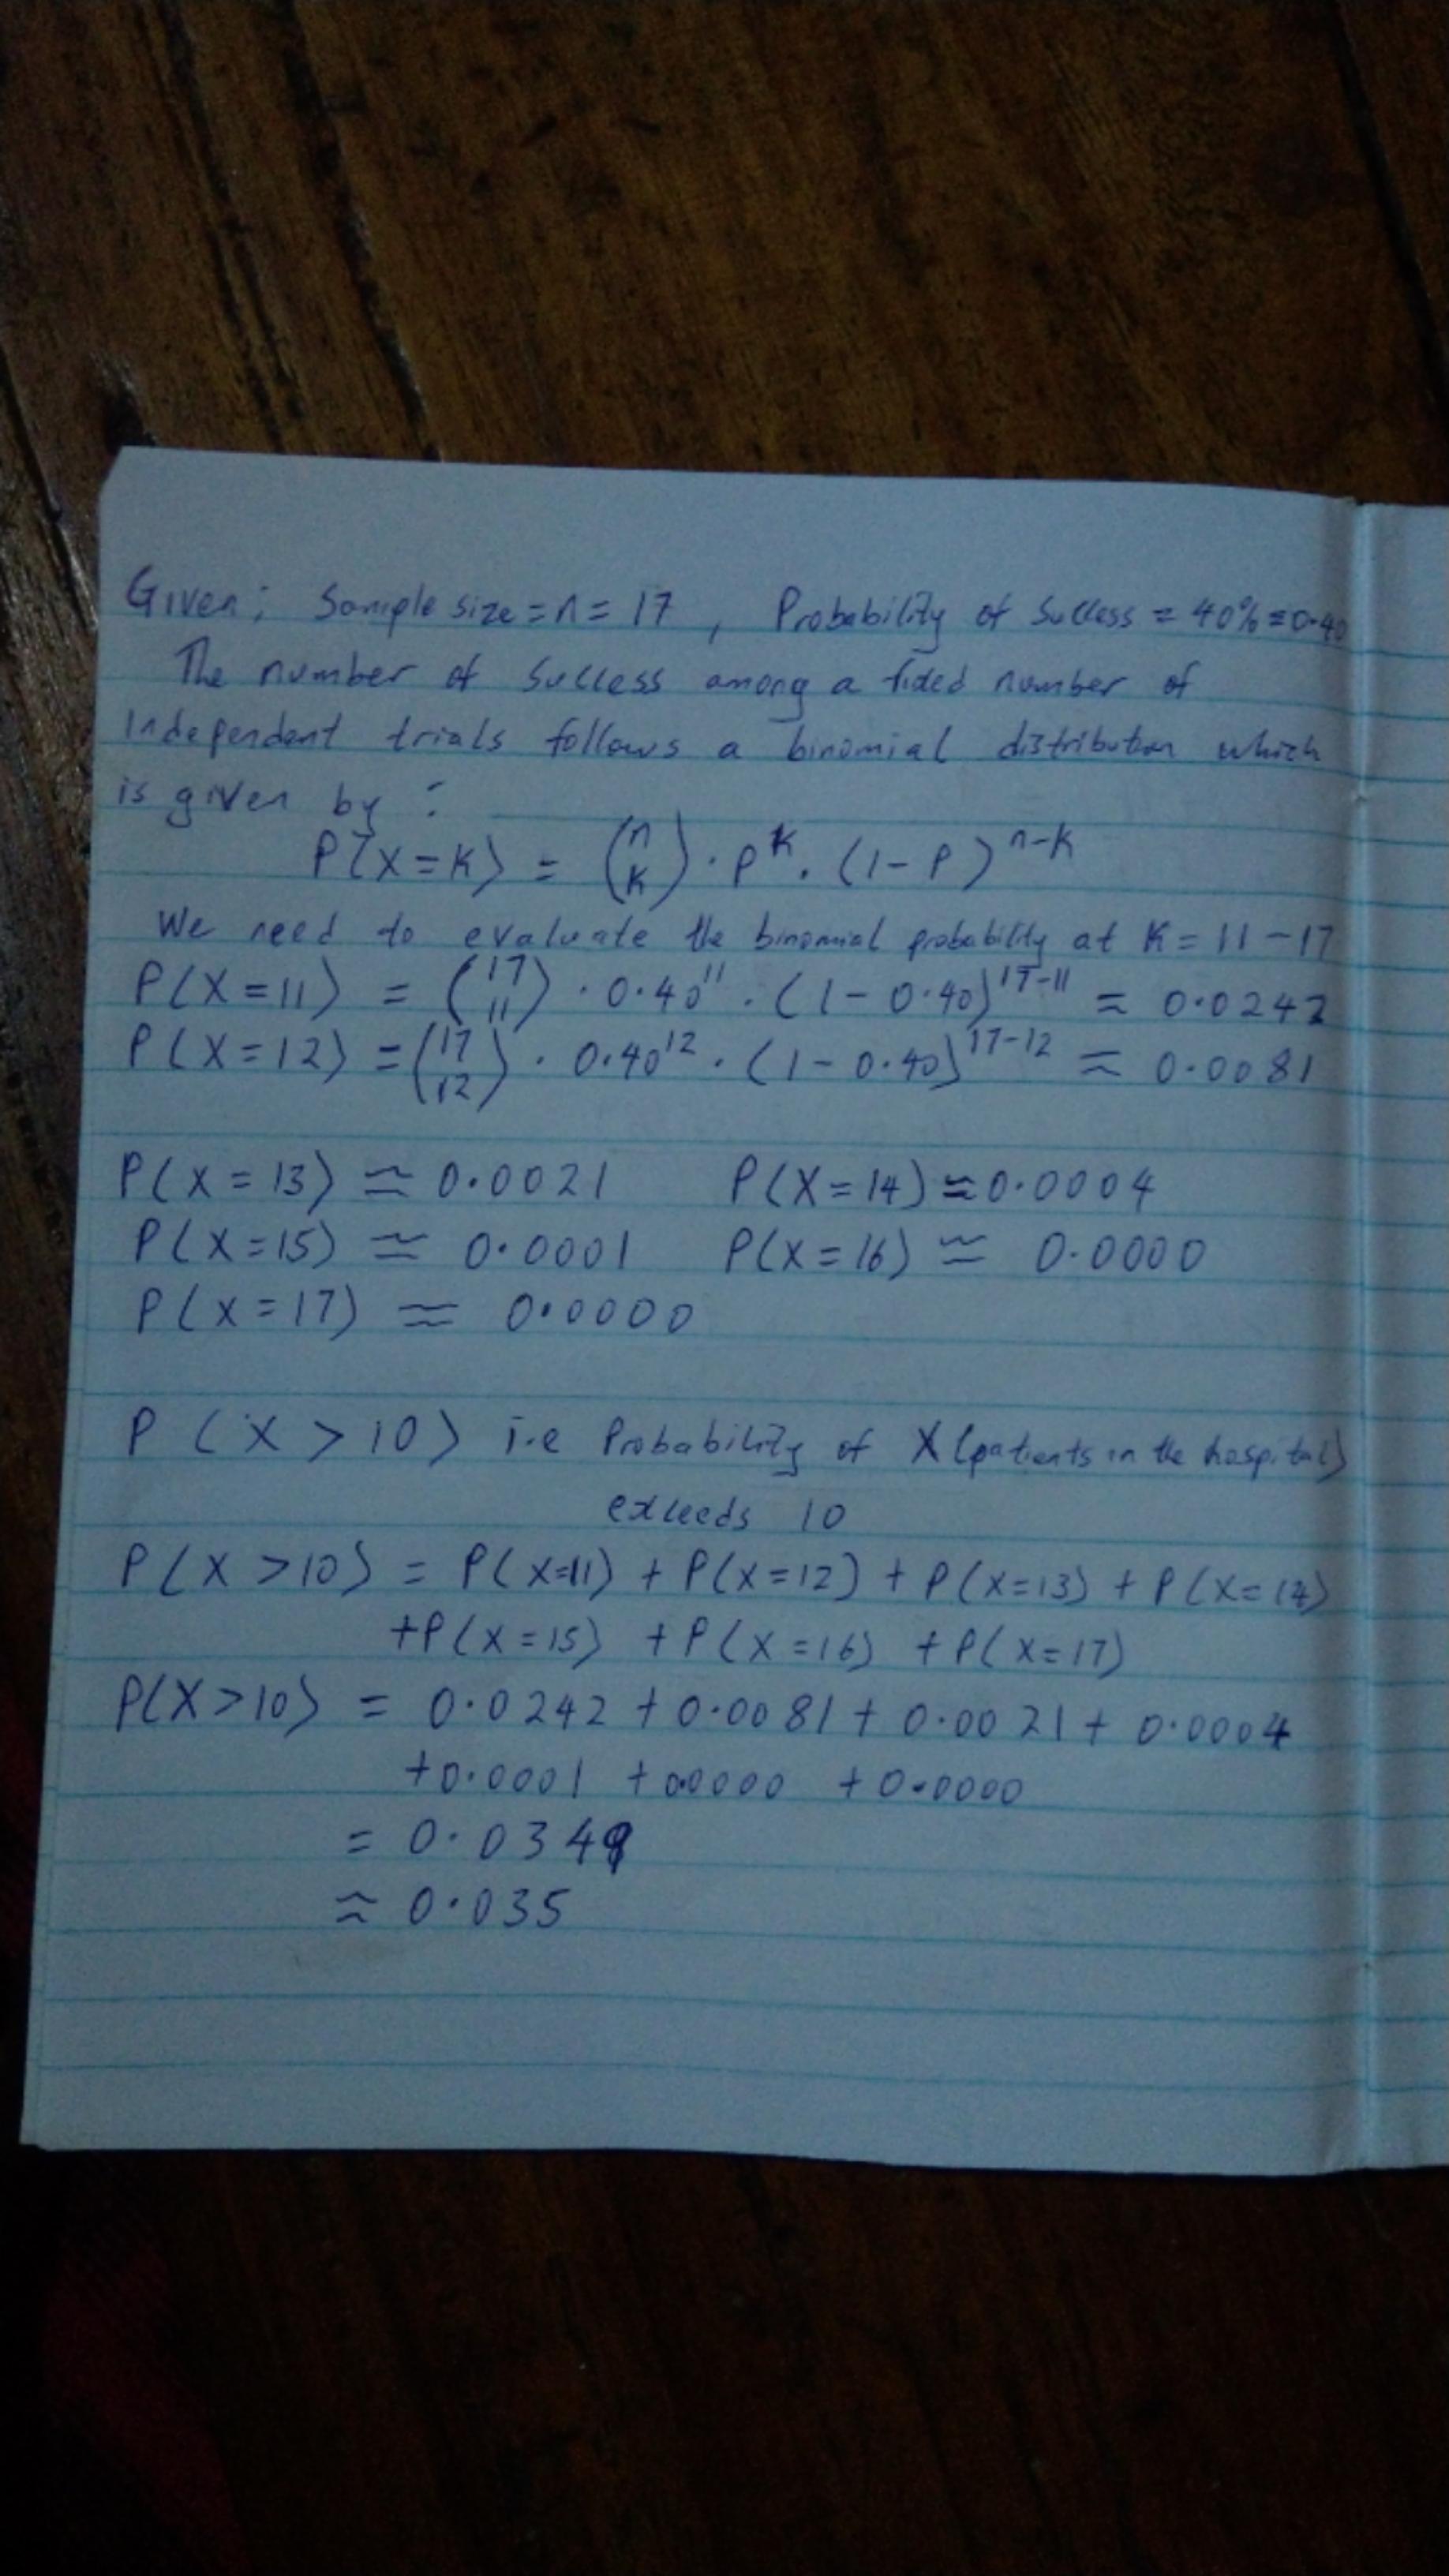 Given; Sample size = n = 17 , Probability of Success = 40% = 0.40
The number of Success among a fixed number of
Independent trials follows a binomial distribution which
is given by :
P(X=K) = (n K) · P^K · (1-P)^n-K
We need to evaluate the binomial probability at K = 11 - 17
P(X=11) = (17 11) · 0.40^11 · (1-0.40)^17-11 ≈ 0.0242
P(X=12) = (17 12) · 0.40^12 · (1-0.40)^17-12 ≈ 0.0081
P(X=13) ≈ 0.0021 P(X=14) ≈ 0.0004
P(X=15) ≈ 0.0001 P(X=16) ≈ 0.0000
P(X=17) ≈ 0.0000
P (X > 10) i.e Probability of X (patients in the hospital)
exceeds 10
P(X >10) = P(X=11) + P(X=12) + P(X=13) + P(X=14)
+P(X=15) +P(X=16) +P(X=17)
P(X>10) = 0.0242 + 0.0081 + 0.0021 + 0.0004
+0.0001 +0.0000 +0.0000
= 0.0349
≈ 0.035